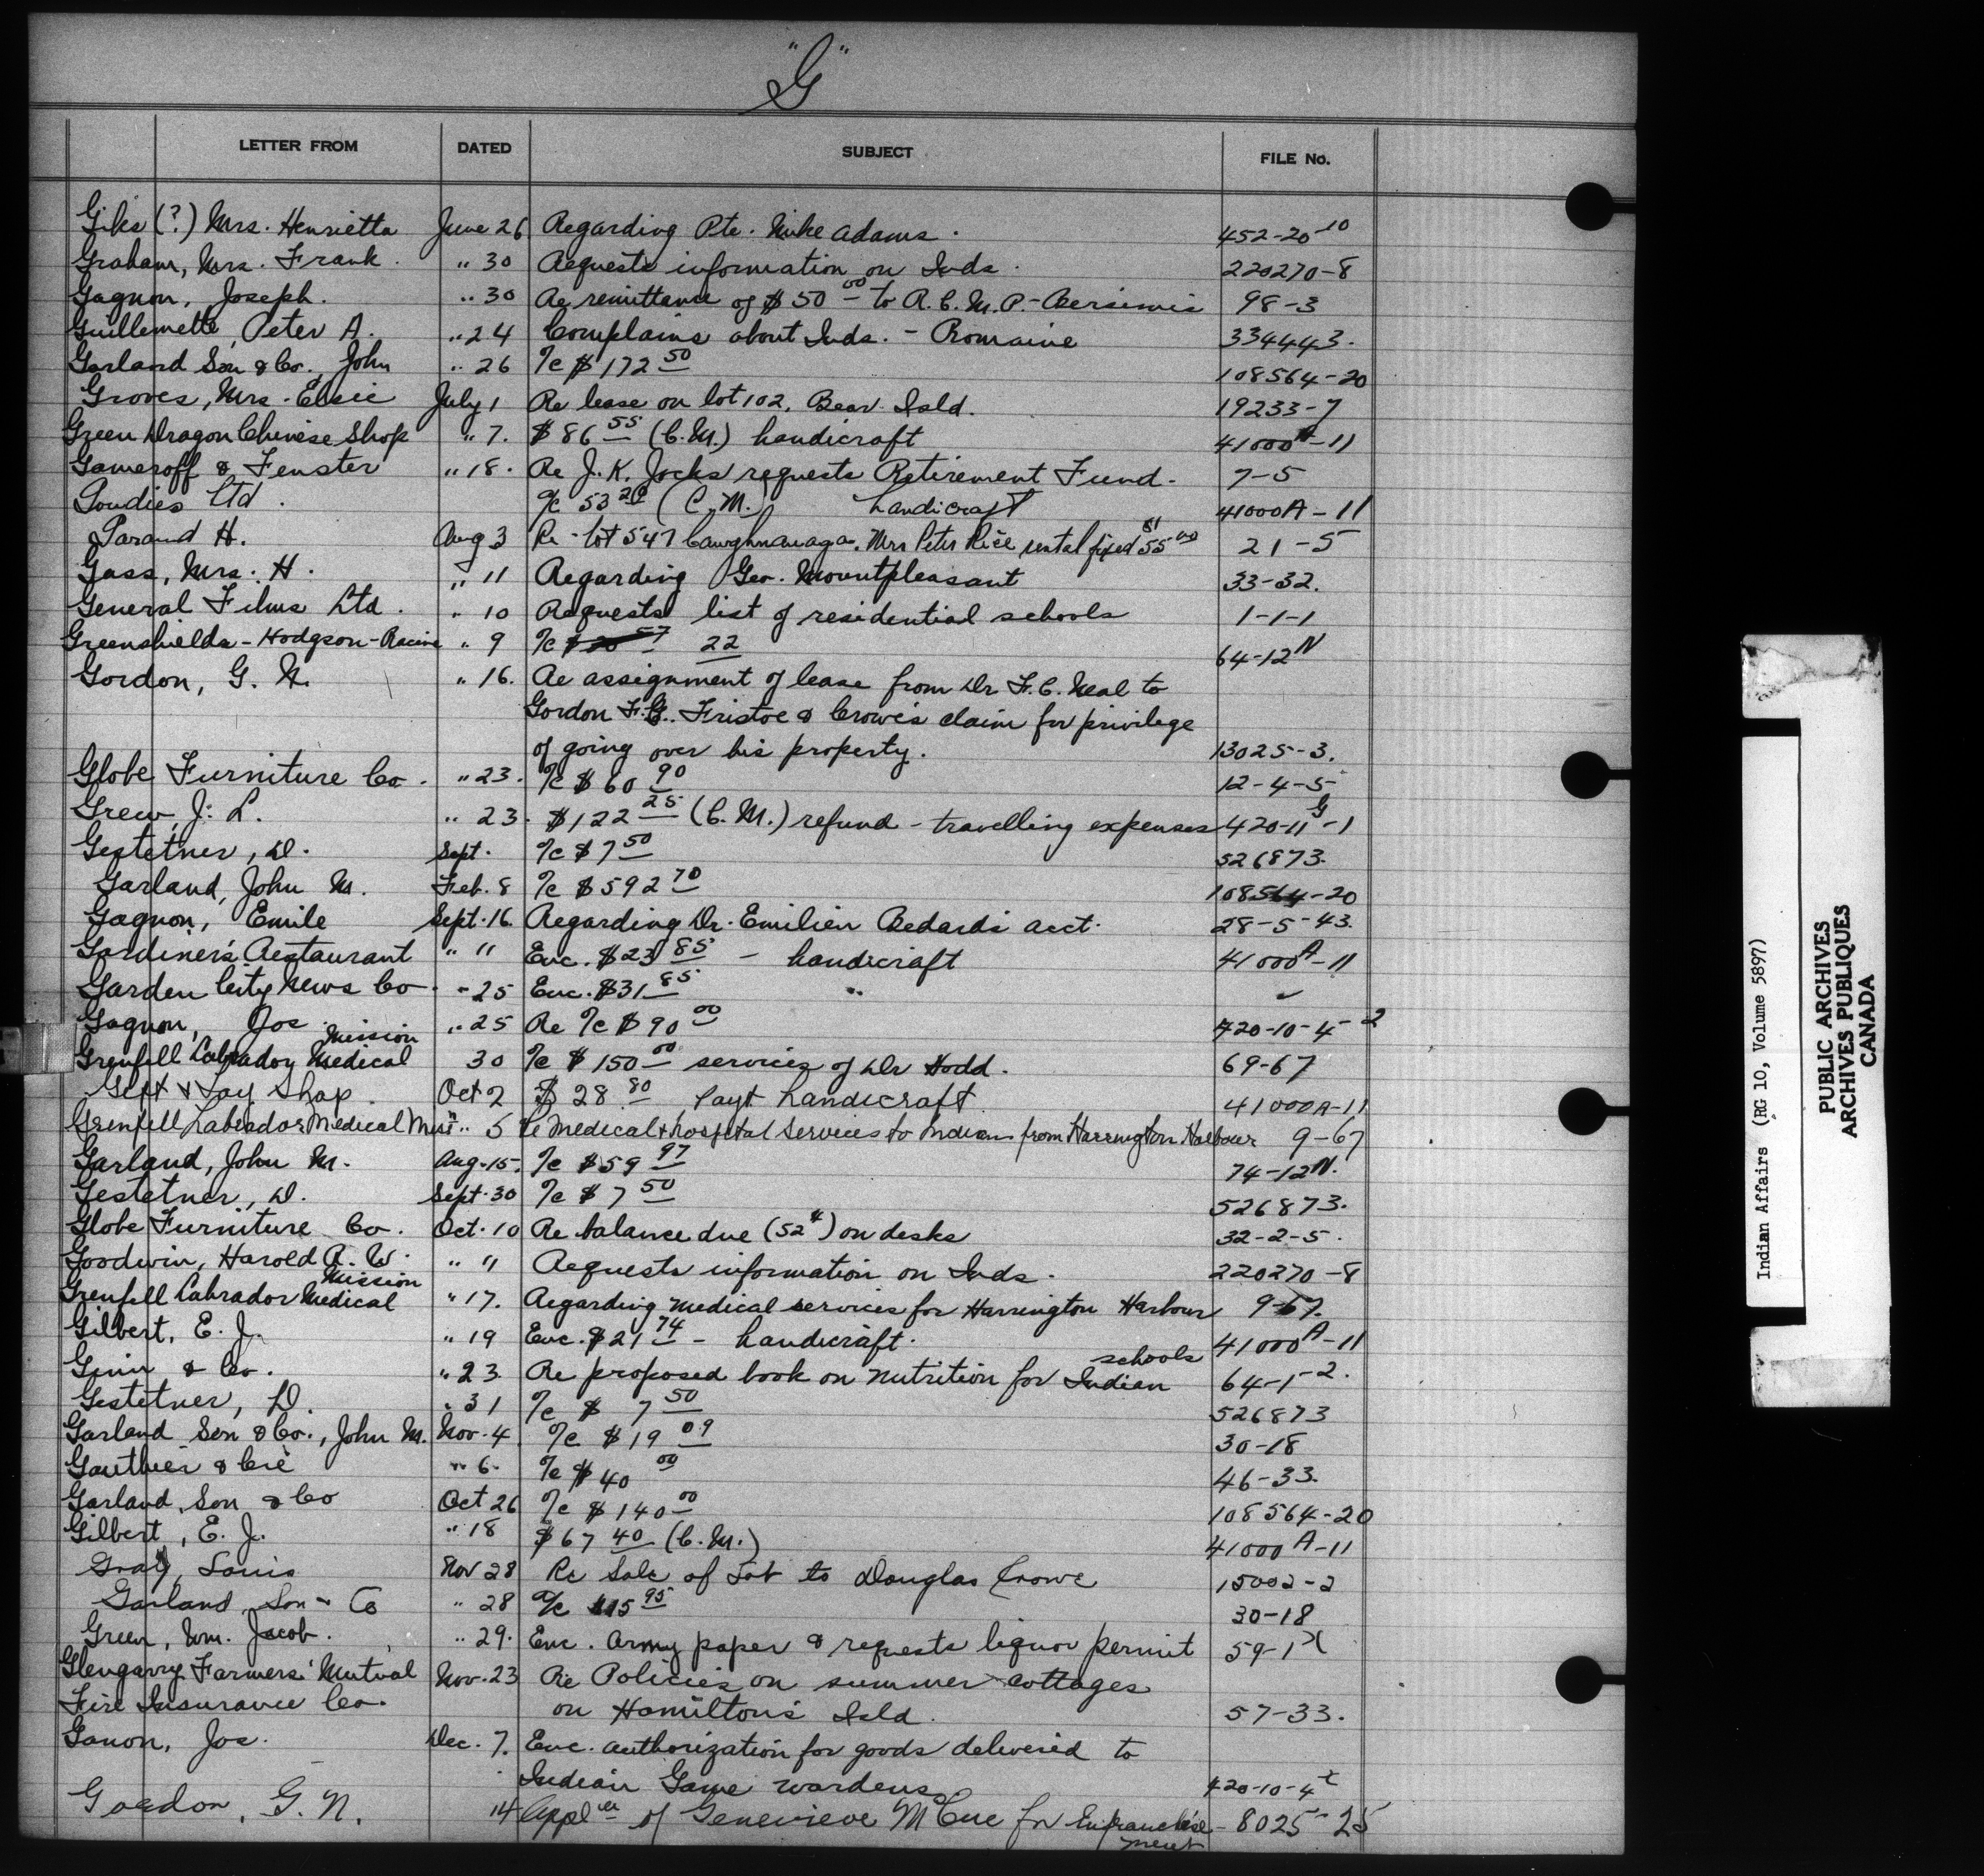 "G"
LETTER FROM DATED SUBJECT FILE No.
Giks (?) Mrs. Henrietta June 26 Regarding Pte. Mike Adams. 452-20-10
Graham, Mrs. Frank. " 30 Requests information on Inds. 220270-8
Gagnon, Joseph. " 30 Re remittance of $50 00 to R.C.M.P.- Bersimis 98-3
Guillemette, Peter A. " 24 Complains about Inds. - Romaine 334443.
Garland Son & Co., John " 26 %c $172 50 108564-20
Groves, Mrs. Elsie July 1 Re lease on lot 102, Bear Isld. 19233-7
Green Dragon Chinese Shop " 7. $86 55 (C.M.) handicraft 41000A-11
Gameroff & Fenster " 18. Re J.K. Jocks requests Retirement Fund. 7-5
Goudies Ltd. %c 53 20 (C.M.) handicraft 41000A-11
Garand H. Aug 3 Re lot 547 Caughnawaga. Mrs Peter Rice rental fixed 55 00 21-5
Gass, Mrs. H. " 11 Regarding Geo. Mountpleasant 33-32.
General Films Ltd. " 10 Requests list of residential schools 1-1-1
Greenshields-Hodgson-Racine " 9 %c 22 64-12N
Gordon, G. N. " 16. Re assignment of lease from Dr F.C. Neal to
Gordon F.G. Fristoe & Crowe's claim for privilege
of going over his property. 13025-3.
Globe Furniture Co. " 23. %c $60 90 12-4-5
Grew, J. L. " 23. $122 25 (C.M.) refund - travelling expenses 420-11G-1
Gestetner, D. Sept. %c $7 50 526873.
Garland, John M. Feb. 8 %c $592 70 108564-20
Gagnon, Emile Sept. 16. Regarding Dr. Emilien Bedard's acct. 28-5-43.
Gardiner's Restaurant " 11 Enc. $23 85 - handicraft 41000A-11
Garden City News Co. - 25 Enc. $31 85 " "
Gagnon, Jos. " 25 Re %c $90 00 420-10-4-2
Grenfell Labrador Medical Mission 30 %c $150 00 services of Dr Hodd. 69-67
Gift & Toy Shop. Oct 2 $28 80 payt handicraft 41000A-11
Grenfell Labrador Medical Miss'n " 5 Re Medical & hospital services to Indians from Harrington Harbour 9-67
Garland, John M. Aug. 15. %c $59 97 74-12N.
Gestetner, D. Sept. 30 %c $7 50 526873.
Globe Furniture Co. Oct. 10 Re balance due (52¢) on desks 32-2-5.
Goodwin, Harold R. W. " " Requests information on Inds. 220270-8
Grenfell Labrador Medical Mission " 17. Regarding medical services for Harrington Harbour 9-67.
Gilbert, E. J. " 19 Enc. $21 74 - handicraft. 41000A-11
Ginn & Co. " 23. Re proposed book on nutrition for Indian schools 64-1-2.
Gestetner, D. " 31 %c $ 7 50 526873
Garland Son & Co., John M. Nov. 4 %c $19 09 30-18
Gauthier & Cie " 6. %c $40 00 46-33.
Garland, Son & Co Oct 26 %c $140 00 108564-20
Gilbert, E. J. " 18 $67 40 (C.M.) 41000A-11
Gray, Louis Nov 28 Re Sale of Lot to Douglas Crowe 15002-2
Garland Son & Co " 28 %c $15 95 30-18
Green, Wm. Jacob. " 29. Enc. army paper & requests liquor permit 59-1X
Glengarry Farmers' Mutual Nov. 23 Re Policies on summer cottages
Fire Insurance Co. on Hamilton's Isld. 57-33.
Ganon, Jos. Dec. 7. Enc. authorization for goods delivered to
Indian Game wardens 420-10-4
Gordon, G. N. 14 of Genevieve McCue for Enfranchisement - 8025-25
Indian Affairs (RG 10, Volume 5897)
PUBLIC ARCHIVES
ARCHIVES PUBLIQUES
CANADA